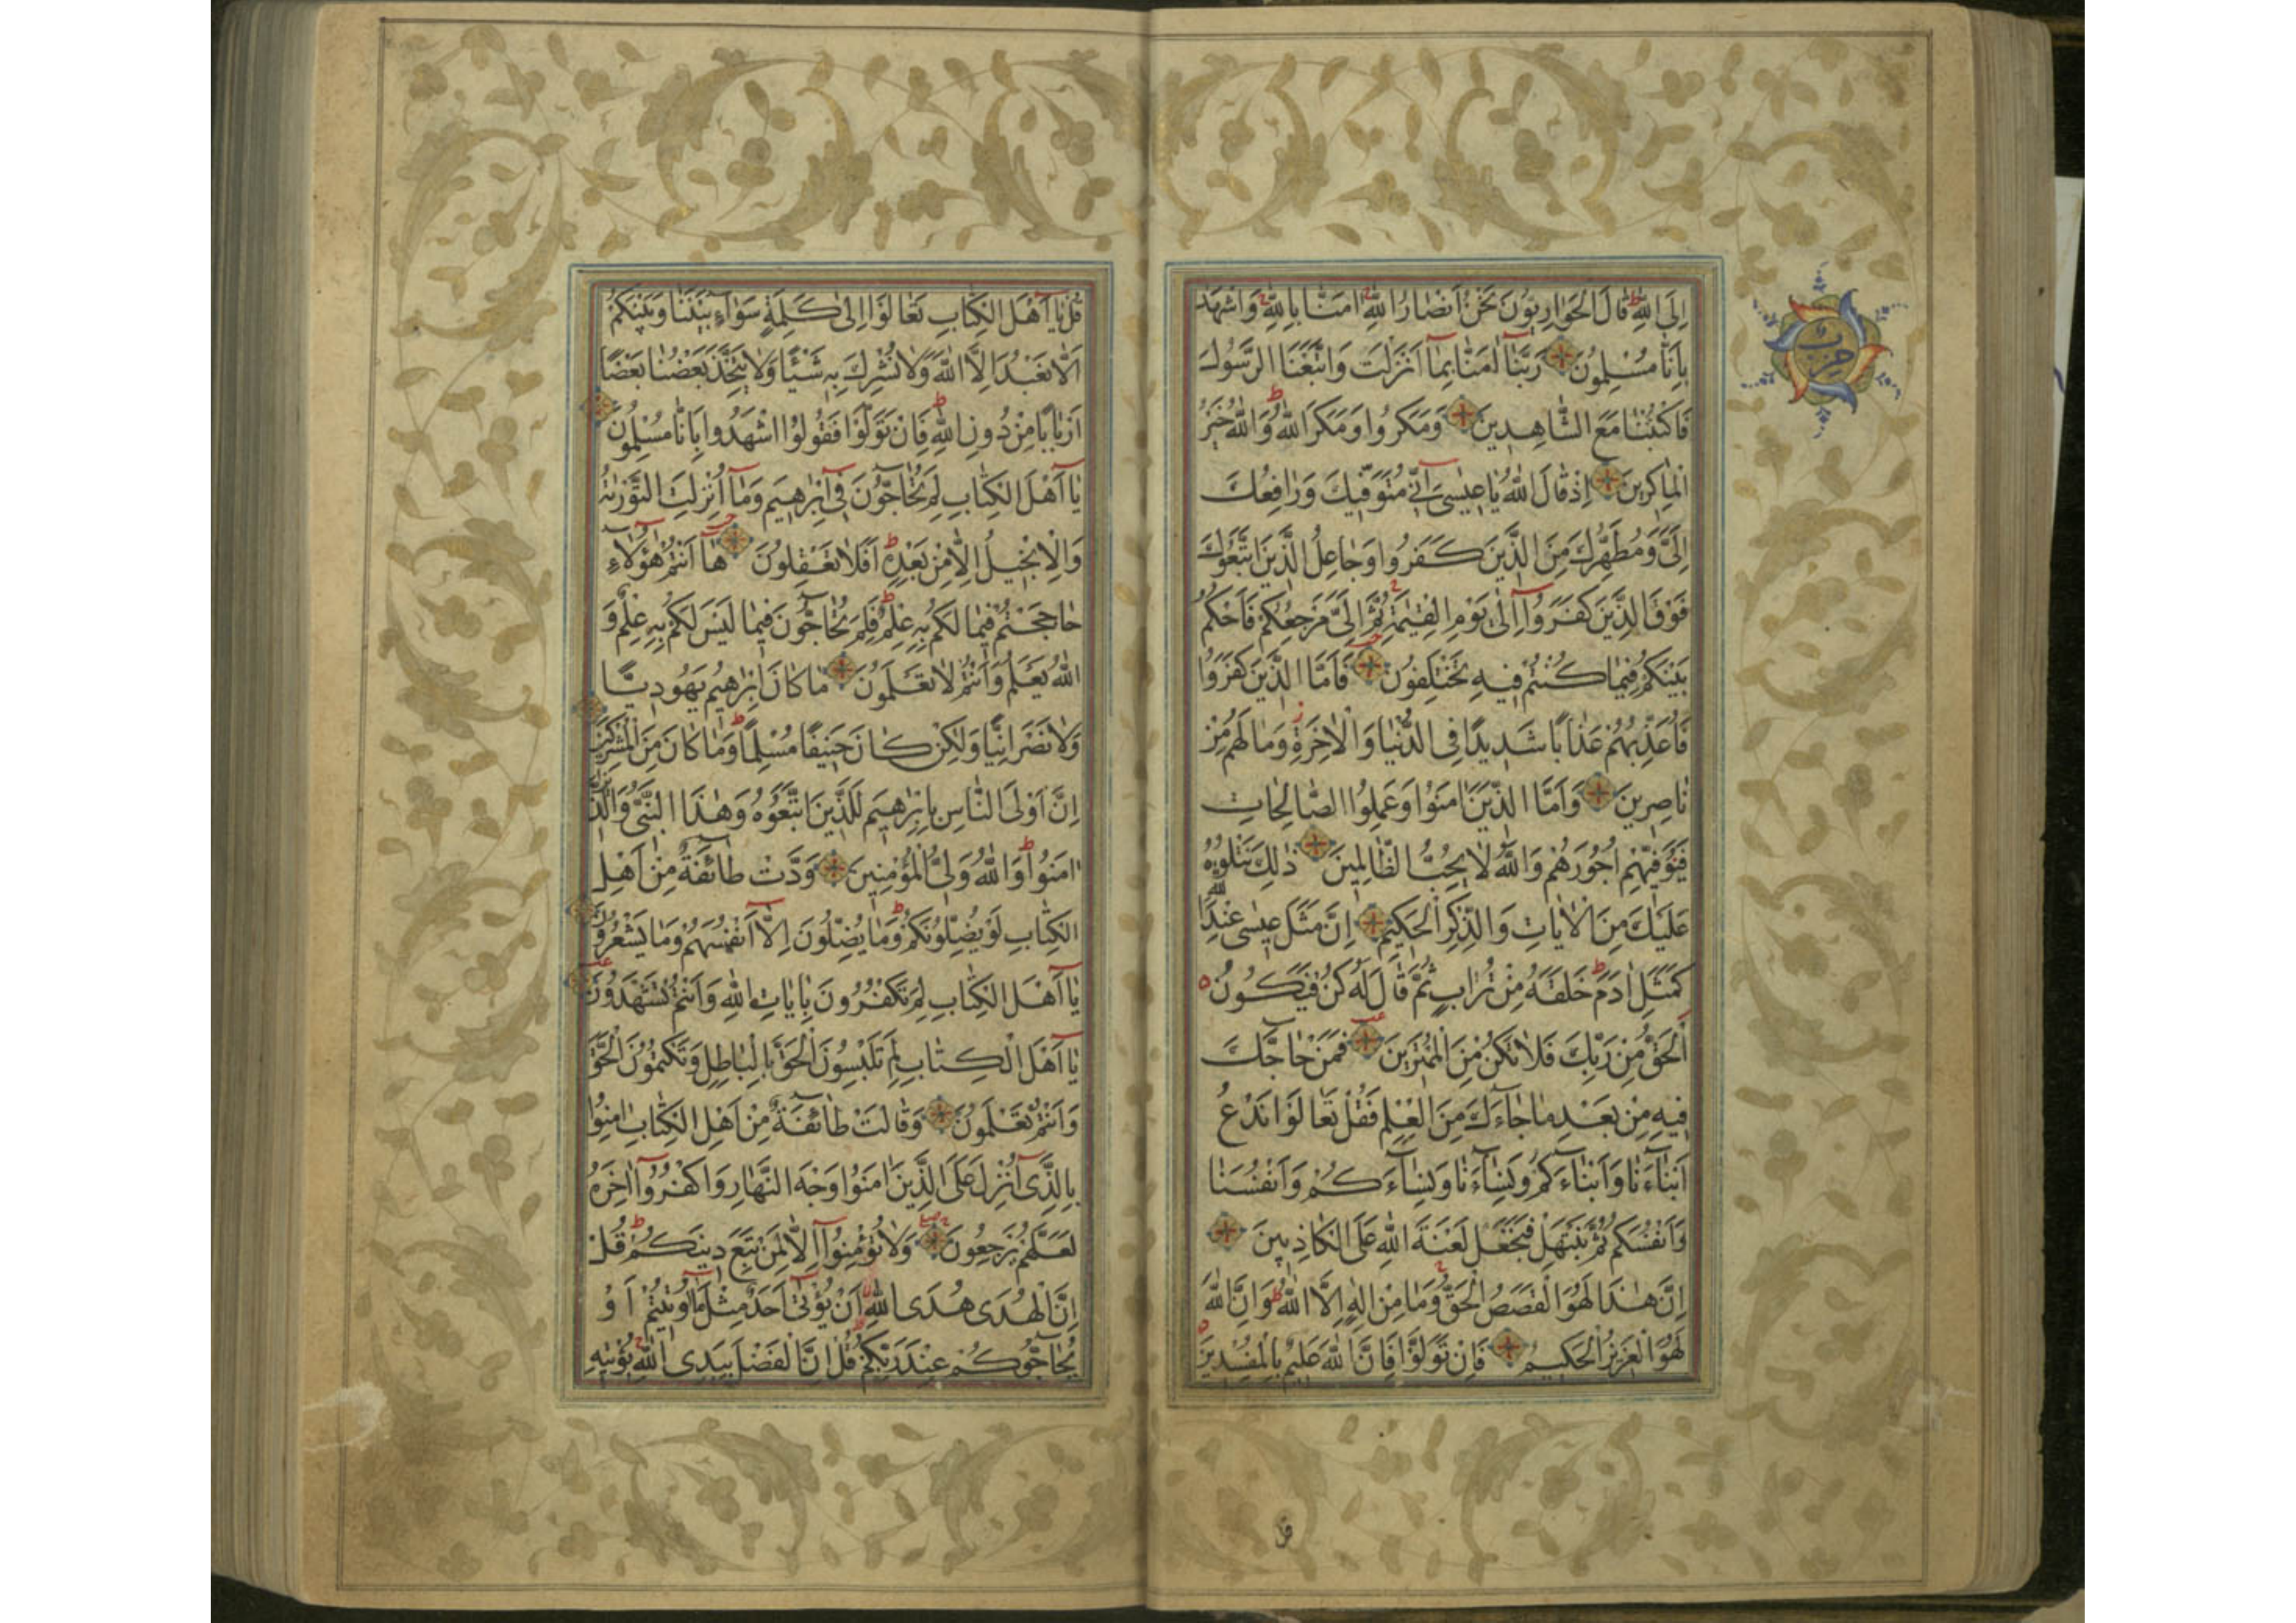 اِلَى اللّٰهِ قَالَ الْحَوَارِيُّونَ نَحْنُ اَنْصَارُ اللّٰهِ اٰمَنَّا بِاللّٰهِ وَاشْهَدْ
بِاَنَّا مُسْلِمُونَ رَبَّنَا اٰمَنَّا بِمَا اَنْزَلْتَ وَاتَّبَعْنَا الرَّسُولَ
فَاكْتُبْنَا مَعَ الشَّاهِدِينَ وَمَكَرُوا وَمَكَرَ اللّٰهُ وَاللّٰهُ خَيْرُ
الْمَاكِرِينَ اِذْ قَالَ اللّٰهُ يَا عِيسٰى اِنِّي مُتَوَفِّيكَ وَرَافِعُكَ
اِلَيَّ وَمُطَهِّرُكَ مِنَ الَّذِينَ كَفَرُوا وَجَاعِلُ الَّذِينَ اتَّبَعُوكَ
فَوْقَ الَّذِينَ كَفَرُوا اِلٰى يَوْمِ الْقِيٰمَةِ ثُمَّ اِلَيَّ مَرْجِعُكُمْ فَاَحْكُمُ
بَيْنَكُمْ فِيمَا كُنْتُمْ فِيهِ تَخْتَلِفُونَ فَاَمَّا الَّذِينَ كَفَرُوا
فَاُعَذِّبُهُمْ عَذَابًا شَدِيدًا فِي الدُّنْيَا وَالْاٰخِرَةِ وَمَا لَهُمْ مِنْ
نَاصِرِينَ وَاَمَّا الَّذِينَ اٰمَنُوا وَعَمِلُوا الصَّالِحَاتِ
فَيُوَفِّيهِمْ اُجُورَهُمْ وَاللّٰهُ لَا يُحِبُّ الظَّالِمِينَ ذٰلِكَ نَتْلُوهُ
عَلَيْكَ مِنَ الْاٰيَاتِ وَالذِّكْرِ الْحَكِيمِ اِنَّ مَثَلَ عِيسٰى عِنْدَ اللّٰهِ
كَمَثَلِ اٰدَمَ خَلَقَهُ مِنْ تُرَابٍ ثُمَّ قَالَ لَهُ كُنْ فَيَكُونُ
اَلْحَقُّ مِنْ رَبِّكَ فَلَا تَكُنْ مِنَ الْمُمْتَرِينَ فَمَنْ حَاجَّكَ
فِيهِ مِنْ بَعْدِ مَا جَاءَكَ مِنَ الْعِلْمِ فَقُلْ تَعَالَوْا نَدْعُ
اَبْنَاءَنَا وَاَبْنَاءَكُمْ وَنِسَاءَنَا وَنِسَاءَكُمْ وَاَنْفُسَنَا
وَاَنْفُسَكُمْ ثُمَّ نَبْتَهِلْ فَنَجْعَلْ لَعْنَةَ اللّٰهِ عَلَى الْكَاذِبِينَ
اِنَّ هٰذَا لَهُوَ الْقَصَصُ الْحَقُّ وَمَا مِنْ اِلٰهٍ اِلَّا اللّٰهُ وَاِنَّ اللّٰهَ
لَهُوَ الْعَزِيزُ الْحَكِيمُ فَاِنْ تَوَلَّوْا فَاِنَّ اللّٰهَ عَلِيمٌ بِالْمُفْسِدِينَ
حزب
قل
قُلْ يَا اَهْلَ الْكِتَابِ تَعَالَوْا اِلٰى كَلِمَةٍ سَوَاءٍ بَيْنَنَا وَبَيْنَكُمْ
اَلَّا نَعْبُدَ اِلَّا اللّٰهَ وَلَا نُشْرِكَ بِهِ شَيْئًا وَلَا يَتَّخِذَ بَعْضُنَا بَعْضًا
اَرْبَابًا مِنْ دُونِ اللّٰهِ فَاِنْ تَوَلَّوْا فَقُولُوا اشْهَدُوا بِاَنَّا مُسْلِمُونَ
يَا اَهْلَ الْكِتَابِ لِمَ تُحَاجُّونَ فِي اِبْرٰهِيمَ وَمَا اُنْزِلَتِ التَّوْرٰيةُ
وَالْاِنْجِيلُ اِلَّا مِنْ بَعْدِهِ اَفَلَا تَعْقِلُونَ هَا اَنْتُمْ هٰؤُلَاءِ
حَاجَجْتُمْ فِيمَا لَكُمْ بِهِ عِلْمٌ فَلِمَ تُحَاجُّونَ فِيمَا لَيْسَ لَكُمْ بِهِ عِلْمٌ وَ
اللّٰهُ يَعْلَمُ وَاَنْتُمْ لَا تَعْلَمُونَ مَا كَانَ اِبْرٰهِيمُ يَهُودِيًّا
وَلَا نَصْرَانِيًّا وَلٰكِنْ كَانَ حَنِيفًا مُسْلِمًا وَمَا كَانَ مِنَ الْمُشْرِكِينَ
اِنَّ اَوْلَى النَّاسِ بِاِبْرٰهِيمَ لَلَّذِينَ اتَّبَعُوهُ وَهٰذَا النَّبِيُّ وَالَّذِينَ
اٰمَنُوا وَاللّٰهُ وَلِيُّ الْمُؤْمِنِينَ وَدَّتْ طَائِفَةٌ مِنْ اَهْلِ
الْكِتَابِ لَوْ يُضِلُّونَكُمْ وَمَا يُضِلُّونَ اِلَّا اَنْفُسَهُمْ وَمَا يَشْعُرُونَ
يَا اَهْلَ الْكِتَابِ لِمَ تَكْفُرُونَ بِاٰيَاتِ اللّٰهِ وَاَنْتُمْ تَشْهَدُونَ
يَا اَهْلَ الْكِتَابِ لِمَ تَلْبِسُونَ الْحَقَّ بِالْبَاطِلِ وَتَكْتُمُونَ الْحَقَّ
وَاَنْتُمْ تَعْلَمُونَ وَقَالَتْ طَائِفَةٌ مِنْ اَهْلِ الْكِتَابِ اٰمِنُوا
بِالَّذِي اُنْزِلَ عَلَى الَّذِينَ اٰمَنُوا وَجْهَ النَّهَارِ وَاكْفُرُوا اٰخِرَهُ
لَعَلَّهُمْ يَرْجِعُونَ وَلَا تُؤْمِنُوا اِلَّا لِمَنْ تَبِعَ دِينَكُمْ قُلْ
اِنَّ الْهُدٰى هُدَى اللّٰهِ اَنْ يُؤْتٰى اَحَدٌ مِثْلَ مَا اُوتِيتُمْ اَوْ
يُحَاجُّوكُمْ عِنْدَ رَبِّكُمْ قُلْ اِنَّ الْفَضْلَ بِيَدِ اللّٰهِ يُؤْتِيهِ